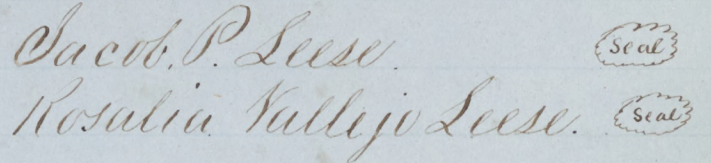 Jacob. P. Leese. Seal
Rosalia Vallejo Leese. Seal